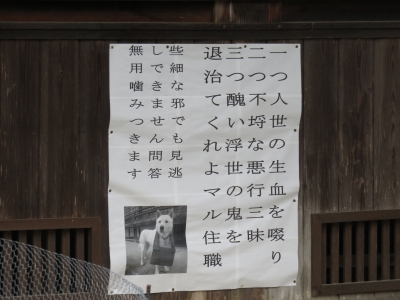 一つ人世の生血を啜り
二つ不埒な悪行三昧
三つ醜い浮世の鬼を
退治てくれよマル住職
些細な邪でも見逃
しできません問答
無用噛みつきます